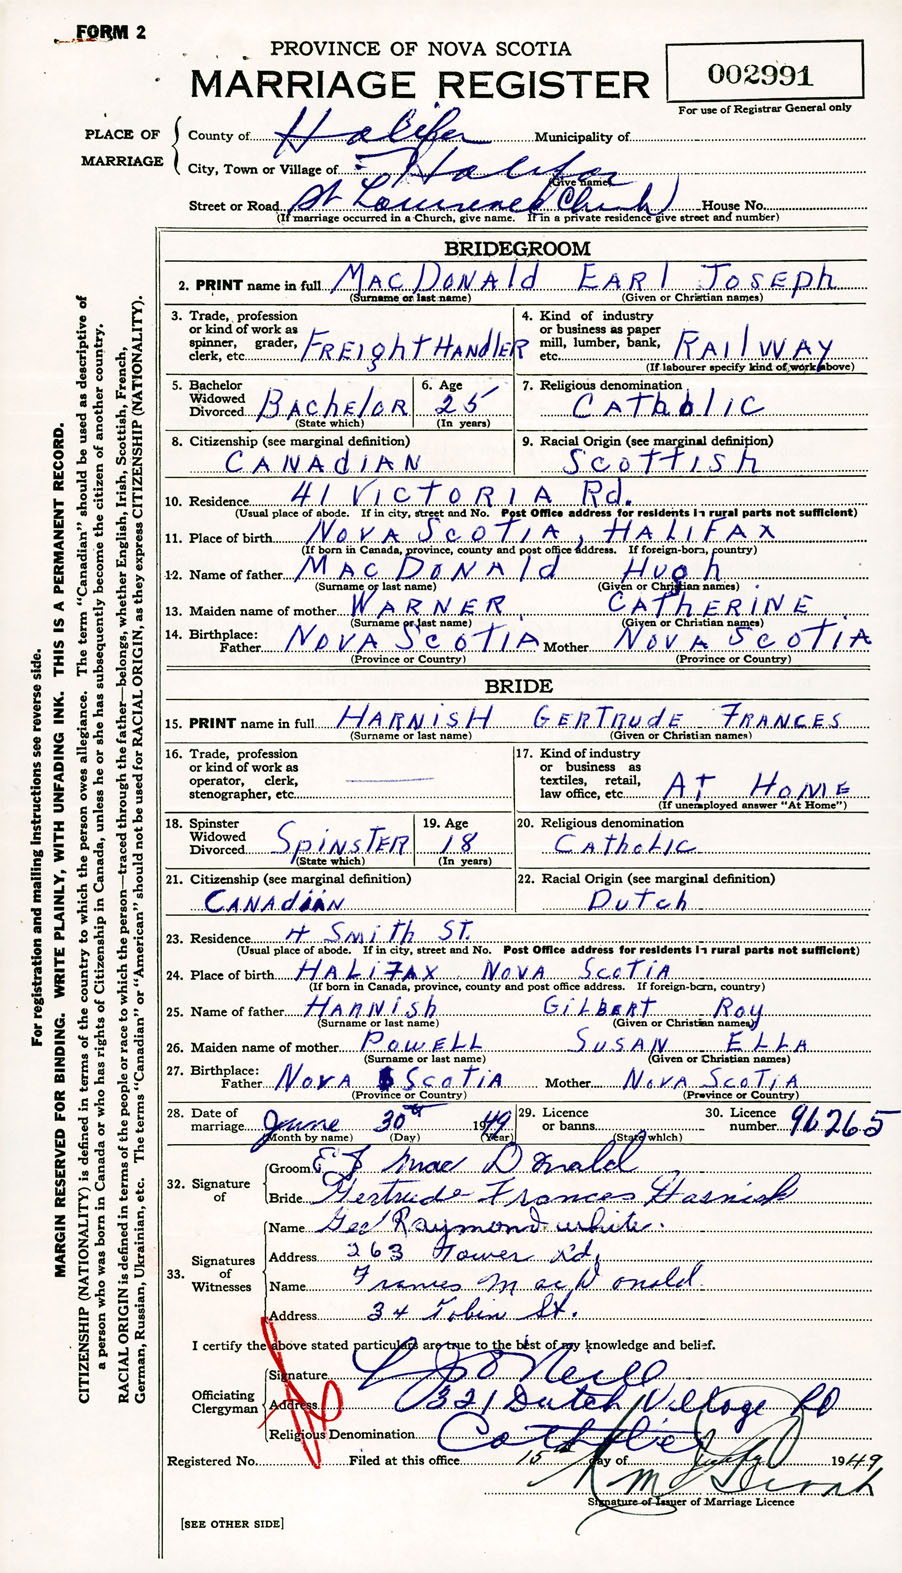 FORM 2
PROVINCE OF NOVA SCOTIA
MARRIAGE REGISTER
002991
For use of Registrar General only
PLACE OF MARRIAGE
County of Halifax Municipality of
City, Town or Village of Halifax
(Give name)
Street or Road St Lawrence Church) House No.
(If marriage occurred in a Church, give name. If in a private residence give street and number)
BRIDEGROOM
2. PRINT name in full MACDONALD EARL JOSEPH
(Surname or last name) (Given or Christian names)
3. Trade, profession or kind of work as spinner, grader, clerk, etc. FREIGHT HANDLER
4. Kind of industry or business as paper mill, lumber, bank, etc. RAILWAY
(If labourer specify kind of work above)
5. Bachelor Widowed Divorced BACHELOR
(State which)
6. Age 25
(In years)
7. Religious denomination CATHOLIC
8. Citizenship (see marginal definition)
CANADIAN
9. Racial Origin (see marginal definition)
SCOTTISH
10. Residence 41 VICTORIA Rd.
(Usual place of abode. If in city, street and No. Post Office address for residents in rural parts not sufficient)
11. Place of birth NOVA SCOTIA, HALIFAX
(If born in Canada, province, county and post office address. If foreign-born, country)
12. Name of father MACDONALD HUGH
(Surname or last name) (Given or Christian names)
13. Maiden name of mother WARNER CATHERINE
(Surname or last name) (Given or Christian names)
14. Birthplace: Father NOVA SCOTIA Mother NOVA SCOTIA
(Province or Country) (Province or Country)
BRIDE
15. PRINT name in full HARNISH GERTRUDE FRANCES
(Surname or last name) (Given or Christian names)
16. Trade, profession or kind of work as operator, clerk, stenographer, etc.
17. Kind of industry or business as textiles, retail, law office, etc. AT HOME
(If unemployed answer "At Home")
18. Spinster Widowed Divorced SPINSTER
(State which)
19. Age 18
(In years)
20. Religious denomination
CATHOLIC
21. Citizenship (see marginal definition)
CANADIAN
22. Racial Origin (see marginal definition)
Dutch
23. Residence 4 SMITH ST.
(Usual place of abode. If in city, street and No. Post Office address for residents in rural parts not sufficient)
24. Place of birth HALIFAX NOVA SCOTIA
(If born in Canada, province, county and post office address. If foreign-born, country)
25. Name of father HARNISH GILBERT ROY
(Surname or last name) (Given or Christian names)
26. Maiden name of mother POWELL SUSAN ELLA
(Surname or last name) (Given or Christian names)
27. Birthplace: Father NOVA SCOTIA Mother NOVA SCOTIA
(Province or Country) (Province or Country)
28. Date of marriage June 30th 1949
(Month by name) (Day) (Year)
29. Licence or banns
(State which)
30. Licence number 96265
32. Signature of
Groom E J MacDonald
Bride Gertrude Frances Harnish
33. Signatures of Witnesses
Name Geo Raymond White.
Address 263 Tower Rd.
Name Frances MacDonald
Address 34 Tobin St.
I certify the above stated particulars are true to the best of my knowledge and belief.
Officiating Clergyman
Signature O'Neill
Address 321 Dutch Village RD
Religious Denomination Catholic
Registered No. Filed at this office 15th day of July 1949
Signature of Issuer of Marriage Licence
[SEE OTHER SIDE]
For registration and mailing instructions see reverse side.
MARGIN RESERVED FOR BINDING. WRITE PLAINLY, WITH UNFADING INK. THIS IS A PERMANENT RECORD.
CITIZENSHIP (NATIONALITY) is defined in terms of the country to which the person owes allegiance. The term "Canadian" should be used as descriptive of
a person who was born in Canada or who has rights of Citizenship in Canada, unless he or she has subsequently become the citizen of another country.
RACIAL ORIGIN is defined in terms of the people or race to which the person—traced through the father—belongs, whether English, Irish, Scottish, French,
German, Russian, Ukrainian, etc. The terms "Canadian" or "American" should not be used for RACIAL ORIGIN, as they express CITIZENSHIP (NATIONALITY).